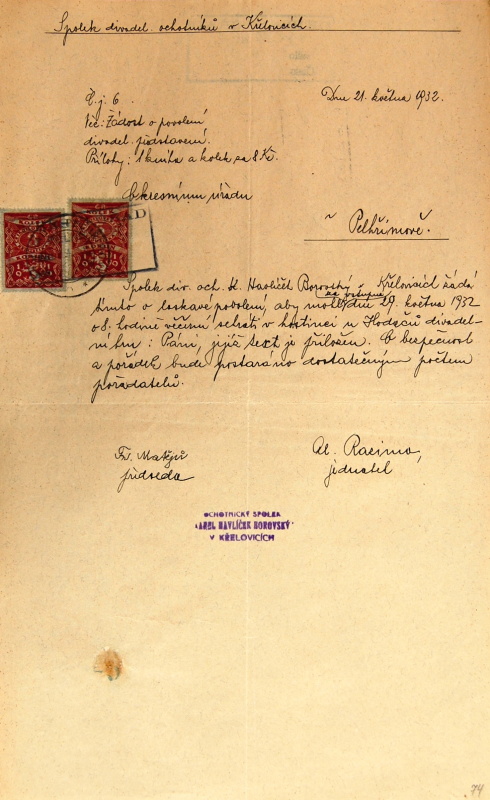 Spolek divadel. ochotníků v Křelovicích.
Č. j. 6
Dne 21. května 1932.
Věc: Žádost o povolení
divadel. představení.
Přílohy: 1 kniha a kolek za 8 Kč.
Okresnímu úřadu
v Pelhřimově.
Spolek div. och. K. Havlíček Borovský Křelovicích žádá
za vstupné
tímto o laskavé povolení, aby mohl dne 29. května 1932
o 8. hodině večerní sehráti v hostinci u Hodačů divadel-
ní hru: Páni, jejíž text je přiložen. O bezpečnost
a pořádek bude postaráno dostatečným počtem
pořadatelů.
Fr. Matějů
předseda
Al. Racima,
jednatel
OCHOTNICKÝ SPOLEK
KAREL HAVLÍČEK BOROVSKÝ
V KŘELOVICÍCH
74